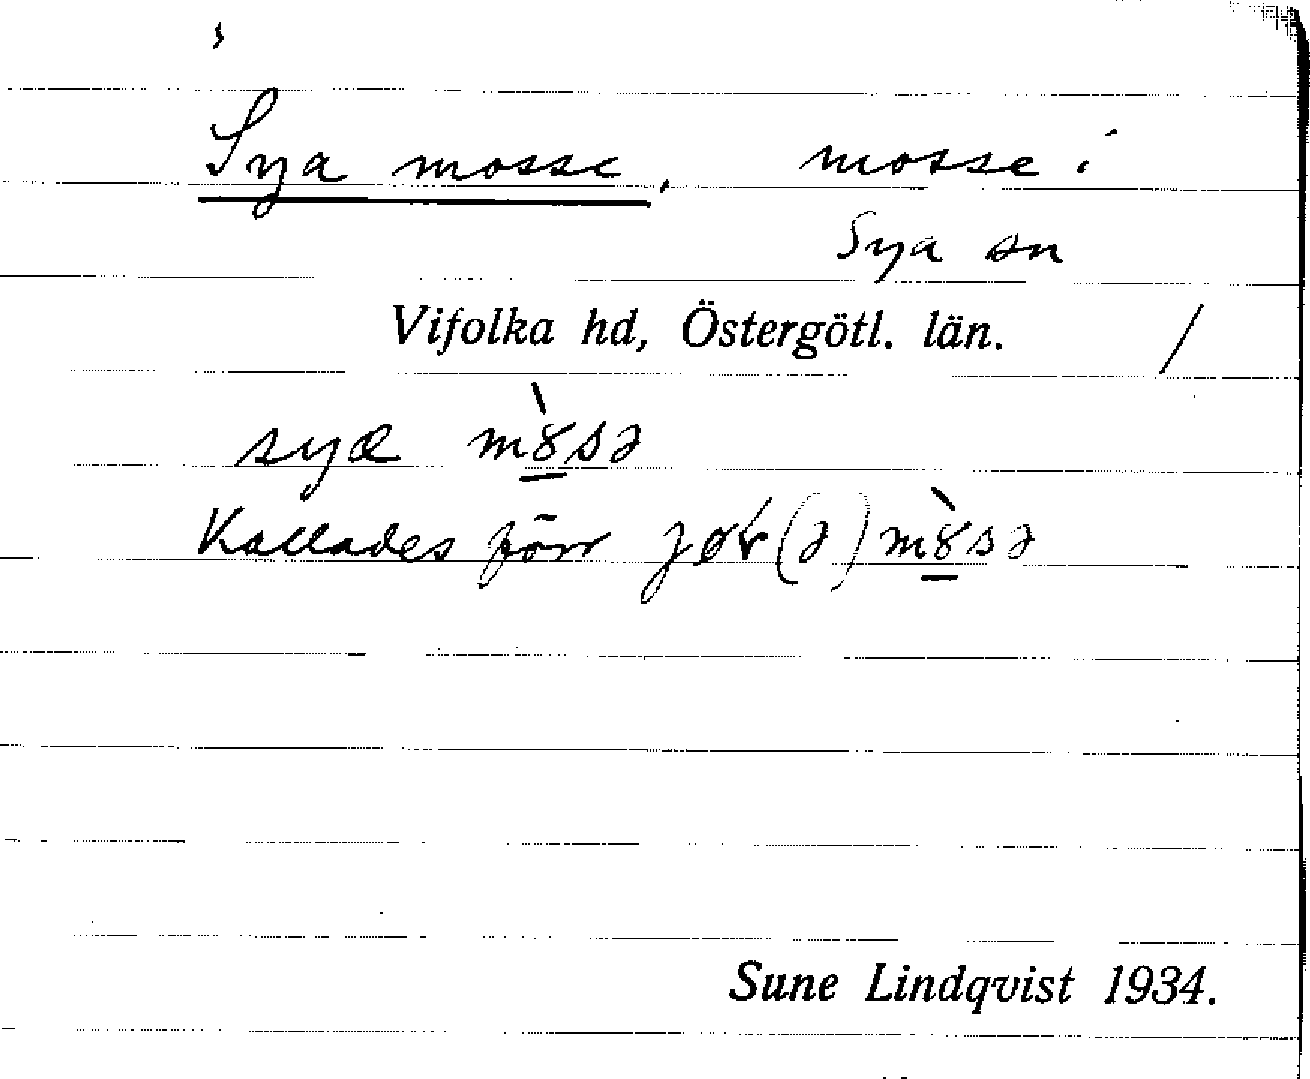 Sya mosse, mosse i
Sya sn
Vifolka hd, Östergötl. län. /
syæ mȣ̀sə
Kallades förr (ə)mȣ̀sə
Sune Lindqvist 1934.